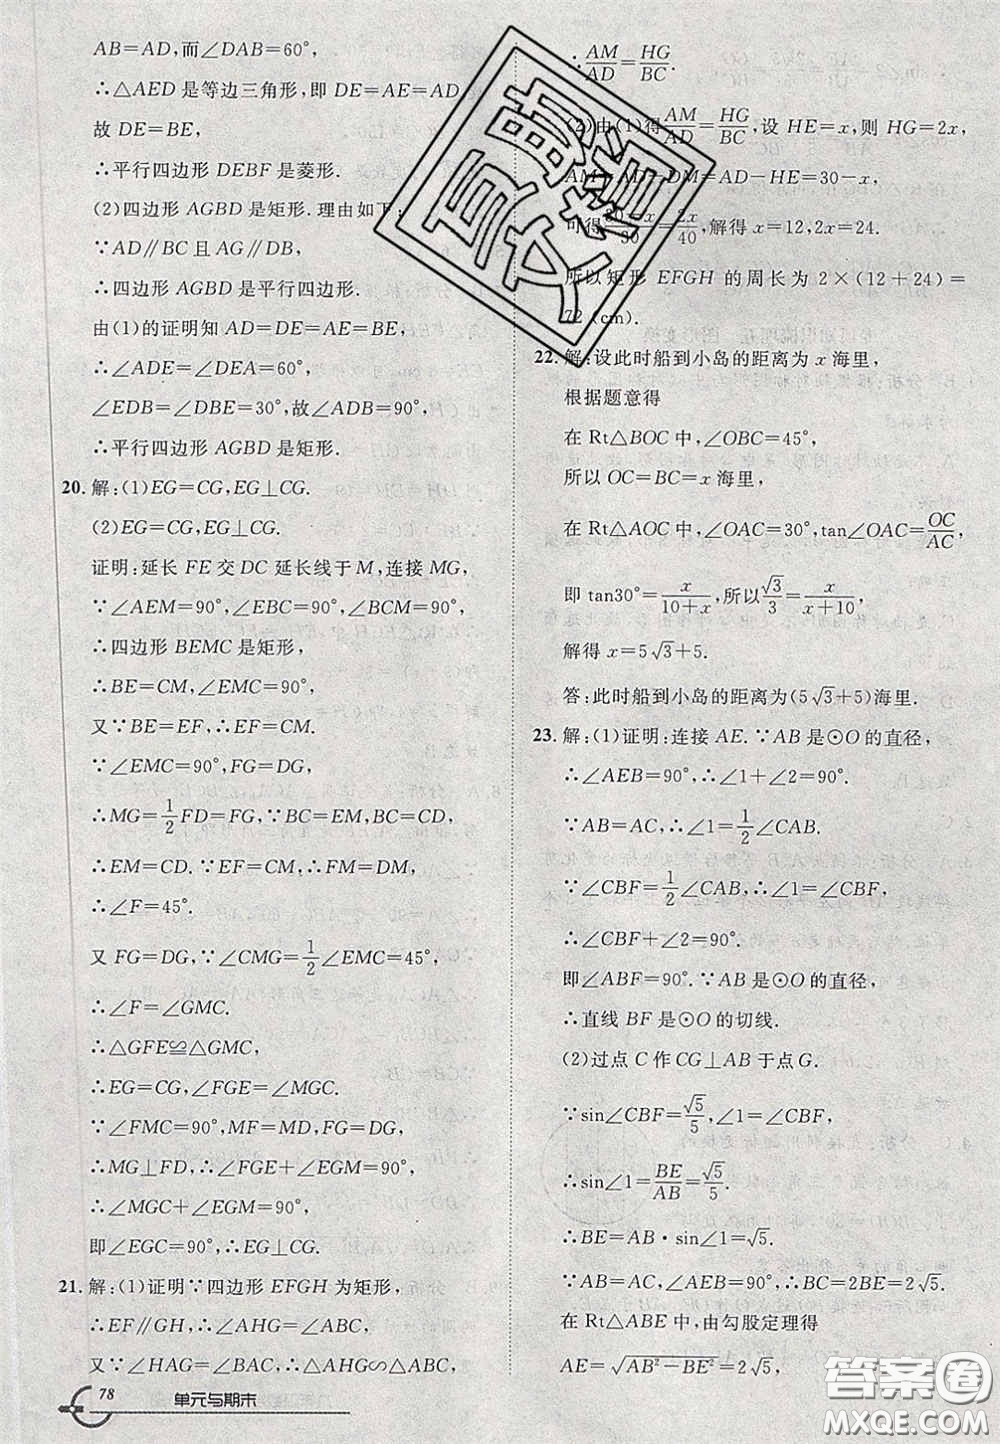 AB=AD,而∠DAB=60°,
∴△AED是等边三角形,即DE=AE=AD,
故DE=BE,
∴平行四边形DEBF是菱形.
(2)四边形AGBD是矩形.理由如下:
∵AD∥BC且AG∥DB,
∴四边形AGBD是平行四边形.
由(1)的证明知AD=DE=AE=BE,
∴∠ADE=∠DEA=60°,
∠EDB=∠DBE=30°,故∠ADB=90°,
∴平行四边形AGBD是矩形.
20.解:(1)EG=CG,EG⊥CG.
(2)EG=CG,EG⊥CG.
证明:延长FE交DC延长线于M,连接MG,
∵∠AEM=90°,∠EBC=90°,∠BCM=90°,
∴四边形BEMC是矩形,
∴BE=CM,∠EMC=90°,
又∵BE=EF,∴EF=CM.
∵∠EMC=90°,FG=DG,
∴MG=1/2FD=FG.∵BC=EM,BC=CD,
∴EM=CD.∵EF=CM,∴FM=DM,
∴∠F=45°.
又FG=DG,∵∠CMG=1/2∠EMC=45°,
∴∠F=∠GMC.
∴△GFE≌△GMC,
∴EG=CG,∠FGE=∠MGC.
∵∠FMC=90°,MF=MD,FG=DG,
∴MG⊥FD,∴∠FGE+∠EGM=90°,
∴∠MGC+∠EGM=90°,
即∠EGC=90°,∴EG⊥CG.
21.解:(1)证明∵四边形EFGH为矩形,
∴EF∥GH,∴∠AHG=∠ABC,
又∵∠HAG=∠BAC,∴△AHG∽△ABC,
78 单元与期末
∴AM/AD=HG/BC.
(2)由(1)得AM/AD=HG/BC,设HE=x,则HG=2x,
AM=AD-DM=AD-HE=30-x,
可得(30-x)/30=2x/40,解得x=12,2x=24.
所以矩形EFGH的周长为2×(12+24)=
72(cm).
22.解:设此时船到小岛的距离为x海里,
根据题意得
在Rt△BOC中,∠OBC=45°,
所以OC=BC=x海里,
在Rt△AOC中,∠OAC=30°,tan∠OAC=OC/AC,
即tan30°=x/(10+x),所以√3/3=x/(x+10),
解得x=5√3+5.
答:此时船到小岛的距离为(5√3+5)海里.
23.解:(1)证明:连接AE.∵AB是⊙O的直径,
∴∠AEB=90°,∴∠1+∠2=90°.
∵AB=AC,∴∠1=1/2∠CAB.
∵∠CBF=1/2∠CAB,∴∠1=∠CBF,
∴∠CBF+∠2=90°.
即∠ABF=90°.∵AB是⊙O的直径,
∴直线BF是⊙O的切线.
(2)过点C作CG⊥AB于点G.
∵sin∠CBF=√5/5,∠1=∠CBF,
∴sin∠1=BE/AB=√5/5.
∴BE=AB·sin∠1=√5.
∵AB=AC,∠AEB=90°,∴BC=2BE=2√5.
在Rt△ABE中,由勾股定理得
AE=√(AB²-BE²)=2√5.
答案圈
MXQE.COM